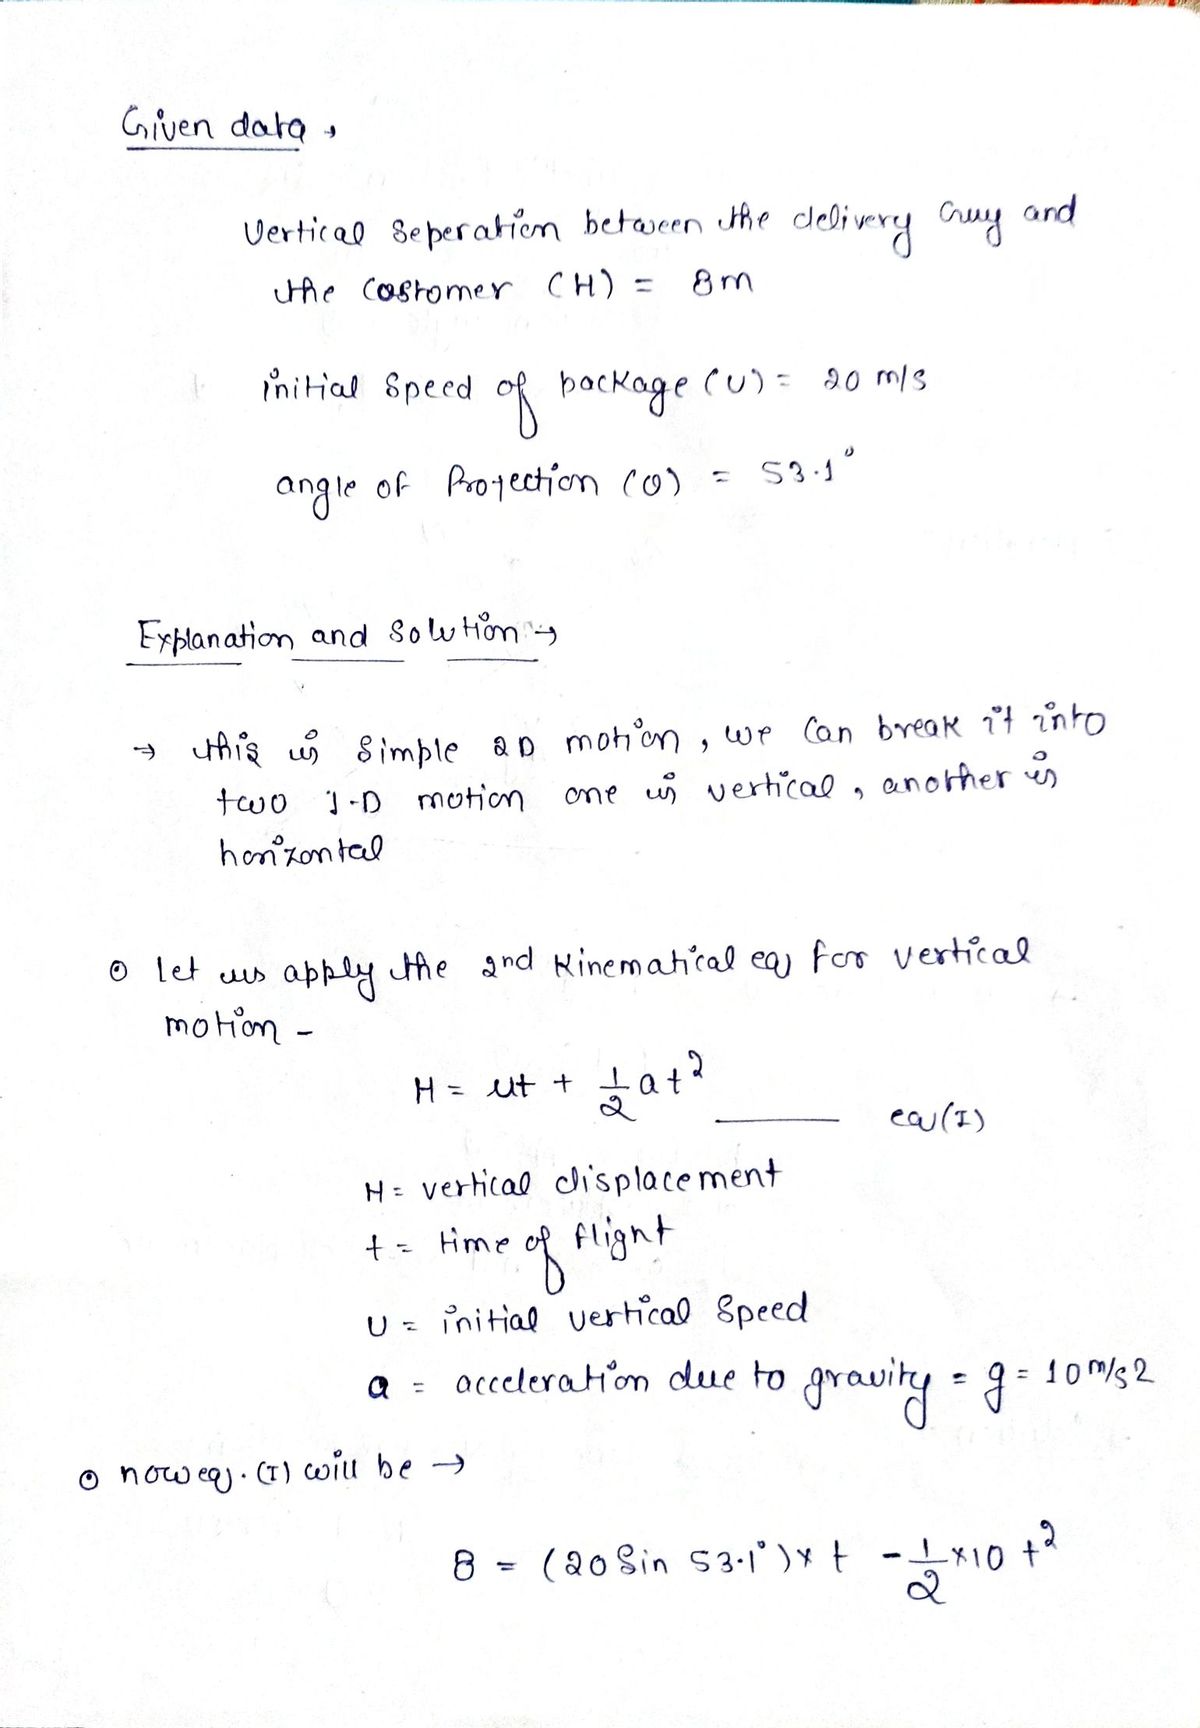 Given data →
Vertical Seperation between the delivery Guy and
the Costomer (H) = 8m
initial Speed of package (U) = 20 m/s
angle of Projection (θ) = 53.1°
Explanation and Solution →
→ this is Simple 2D motion, we Can break it into
two 1-D motion one is vertical, another is
horizontal
⊙ let us apply the 2nd Kinematical eq for vertical
motion -
H = ut + 1/2 at² ——— eq (I)
H = vertical displacement
t = time of flight
U = initial vertical Speed
a = acceleration due to gravity = g = 10 m/s2
⊙ now eq. (I) will be →
8 = (20 Sin 53.1°) × t - 1/2 × 10 t²